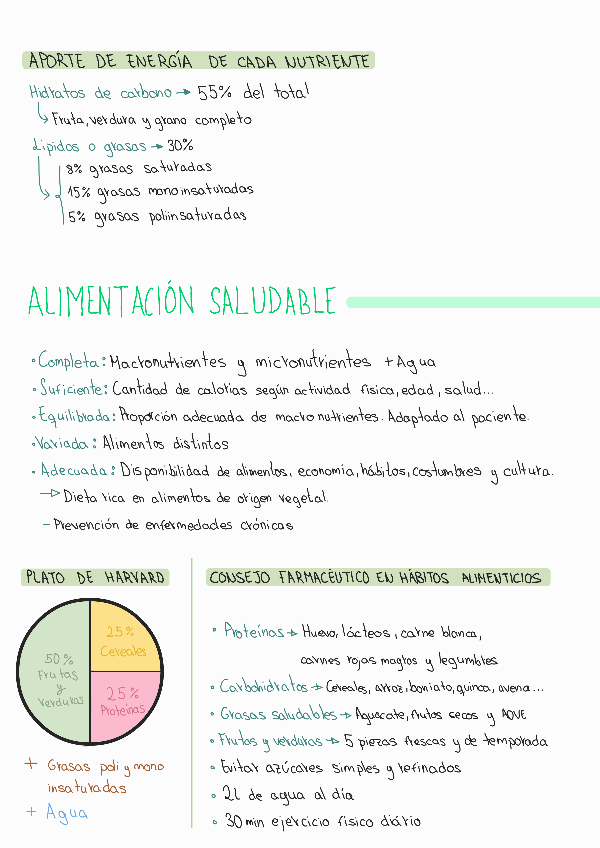 APORTE DE ENERGÍA DE CADA NUTRIENTE
Hidratos de carbono → 55% del total
↳ Fruta, verdura y grano completo
Lípidos o grasas → 30%
8% grasas saturadas
15% grasas monoinsaturadas
5% grasas poliinsaturadas
ALIMENTACIÓN SALUDABLE
• Completa: Macronutrientes y micronutrientes + Agua
• Suficiente: Cantidad de calorías según actividad física, edad, salud...
• Equilibrada: Proporción adecuada de macronutrientes. Adaptado al paciente.
• Variada: Alimentos distintos
• Adecuada: Disponibilidad de alimentos, economía, hábitos, costumbres y cultura.
→ Dieta rica en alimentos de origen vegetal.
- Prevención de enfermedades crónicas
PLATO DE HARVARD
50%
Frutas
y
verduras
25%
Cereales
25%
Proteínas
+ Grasas poli y mono
insaturadas
+ Agua
CONSEJO FARMACÉUTICO EN HÁBITOS ALIMENTICIOS
• Proteínas → Huevo, lácteos, carne blanca,
carnes rojas magras y legumbres
• Carbohidratos → Cereales, arroz, boniato, quinoa, avena...
• Grasas saludables → Aguacate, frutos secos y AOVE
• Frutas y verduras → 5 piezas frescas y de temporada
• Evitar azúcares simples y refinados
• 2L de agua al día
• 30 min ejercicio físico diario